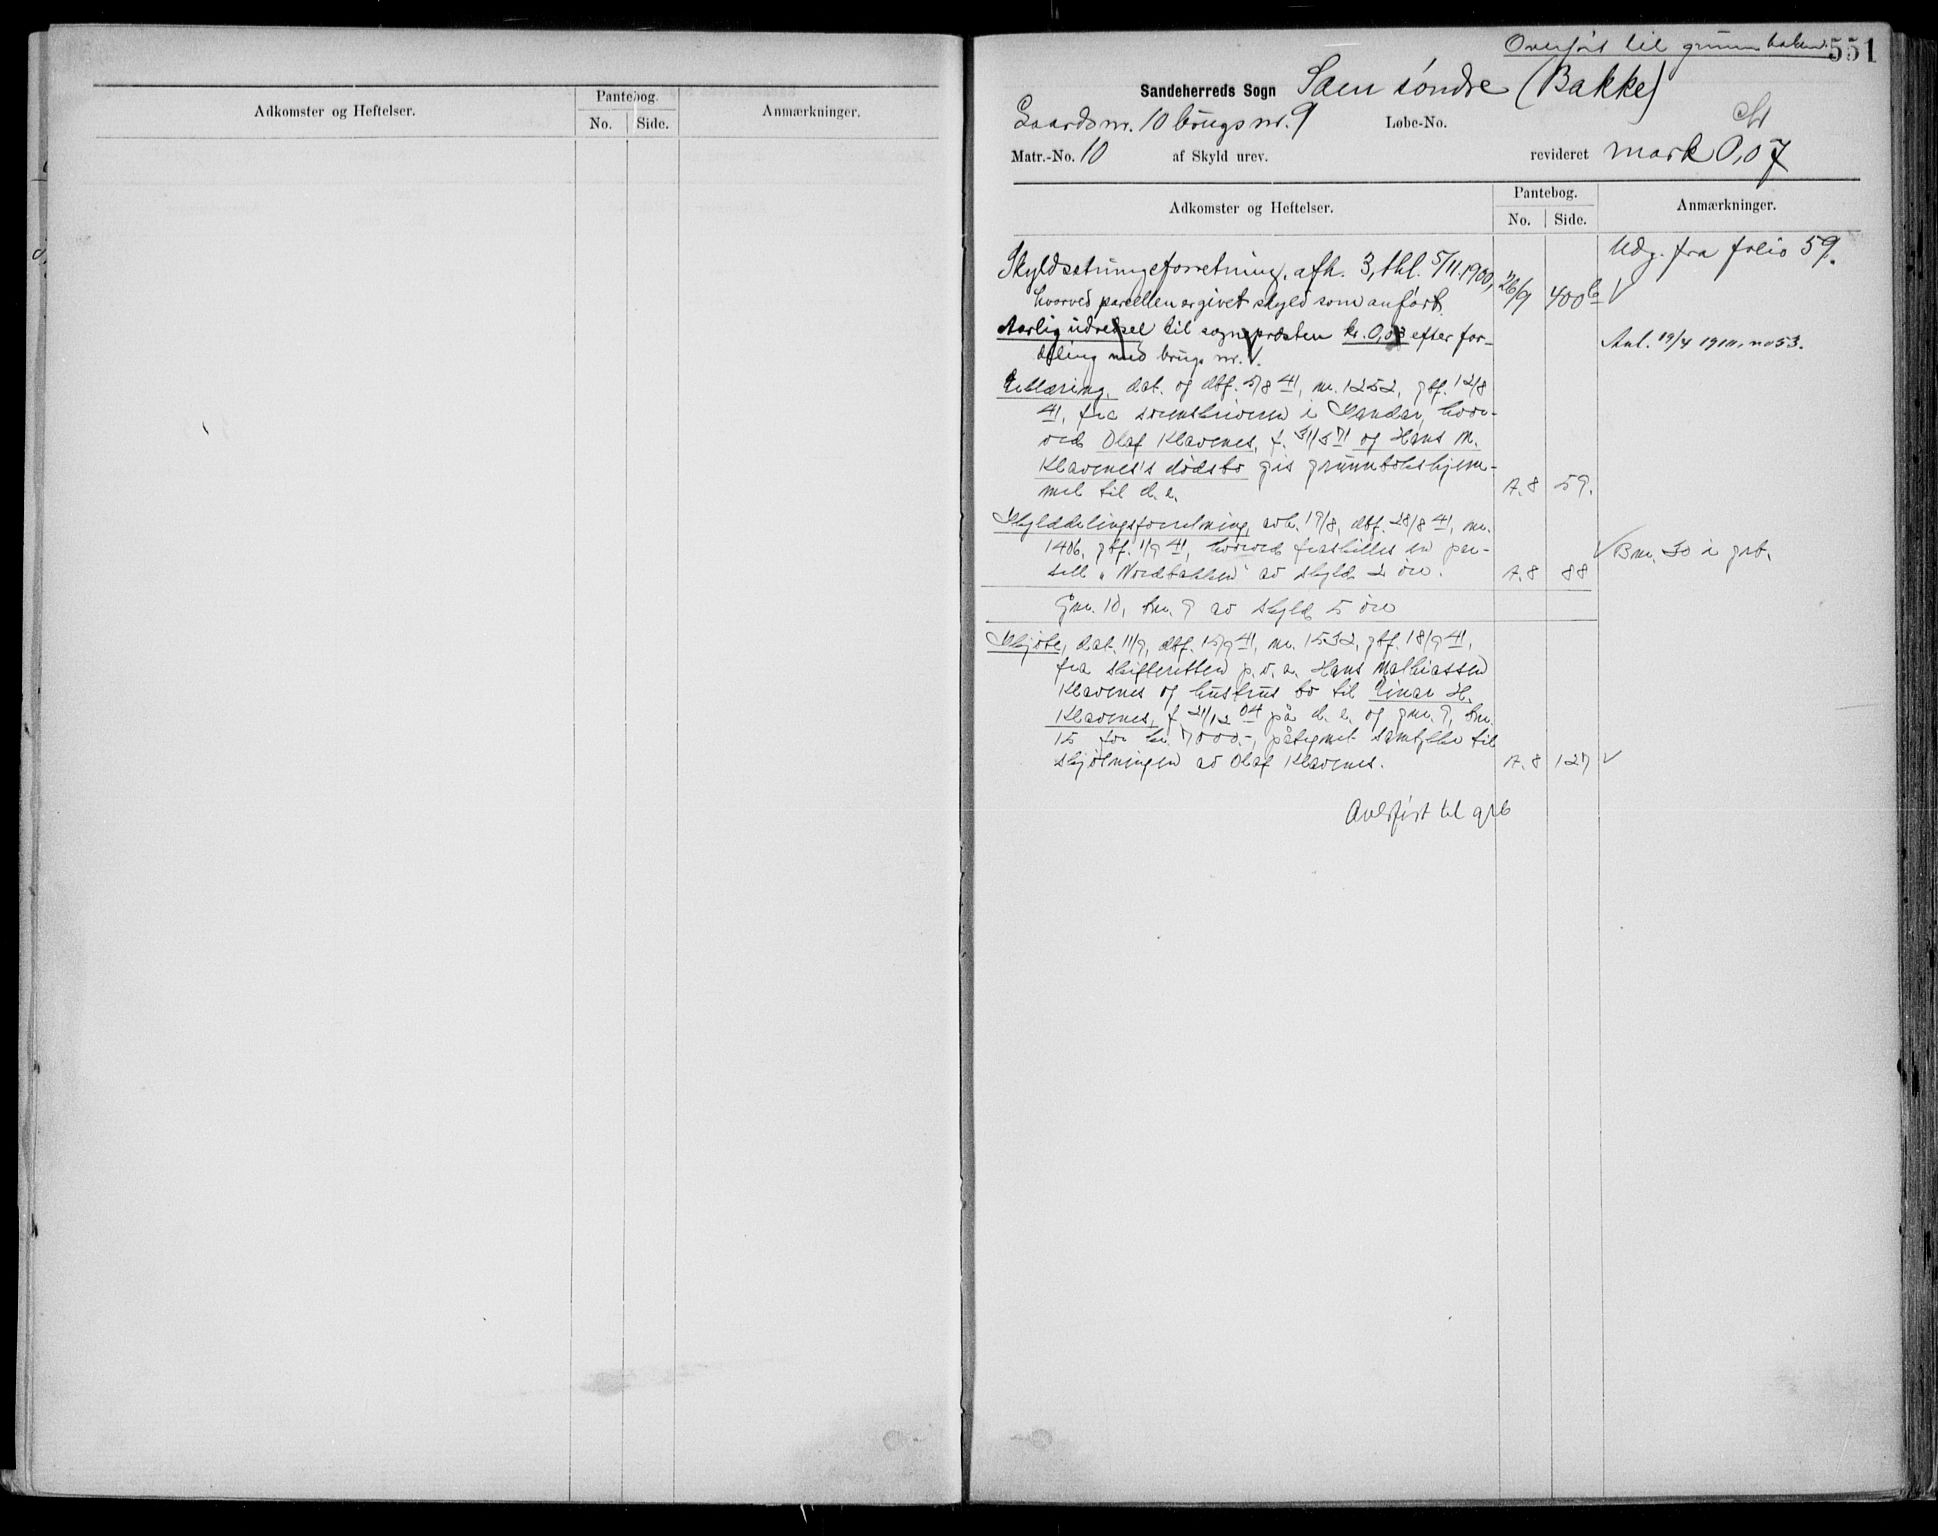 Adkomster og Heftelser.
Pantebog.
No. Side.
Anmærkninger.
Overført til grunnboken
551
Sandeherreds Sogn Saen söndre (Bakke)
Gaardsnr. 10 brugsnr. 9 Løbe-No.
Matr.-No. 10 af Skyld urev. revideret mark 0,07
Adkomster og Heftelser.
Pantebog.
No. Side.
Anmærkninger.
Udg. fra folio 59.
Skyldsætningsforretning, afh. 3, thl. 5/11.1900, 26/9 400b
hvorved parcellen er givet skyld som anført.
Aarlig udredsel til sognepræsten kr. 0,03 efter for-
deling med brugs nr. 1.
Anl. 19/4 1910, no 53.
Erklæring, dat. og dbf. 5/8 41, nr. 1252, gbf. 12/8
41, fra sorenskriveren i Sandar, hvor-
ved Olaf Klavenes, f. 31/5 71 og Hans M.
Klavenes's dødsbo gis grunnbokshjem-
mel til d. e. A. 8 59.
Skylddelingsforretning, avh. 19/8, dbf. 28/8 41, nr.
1406, gbf. 1/9 41, hvorved fraskilles en par-
sell "Nordbakken" av skyld 2 øre. A. 8 88
Bnr. 30 i grb.
Gnr. 10, bnr. 9 av skyld 5 øre
Skjøte, dat. 11/9, dbf. 15/9 41, nr. 1532, gbf. 18/9 41,
fra skifteretten p. v. a. Hans Mathiassen
Klavenes og hustrus bo til Einar H.
Klavenes, f. 21/12 04 på d. e. og gnr. 9, bnr.
15 for kr. 7000.-, påtegnet samtykke til
skjøtningen av Olaf Klavenes. A. 8 127
Overført til grb